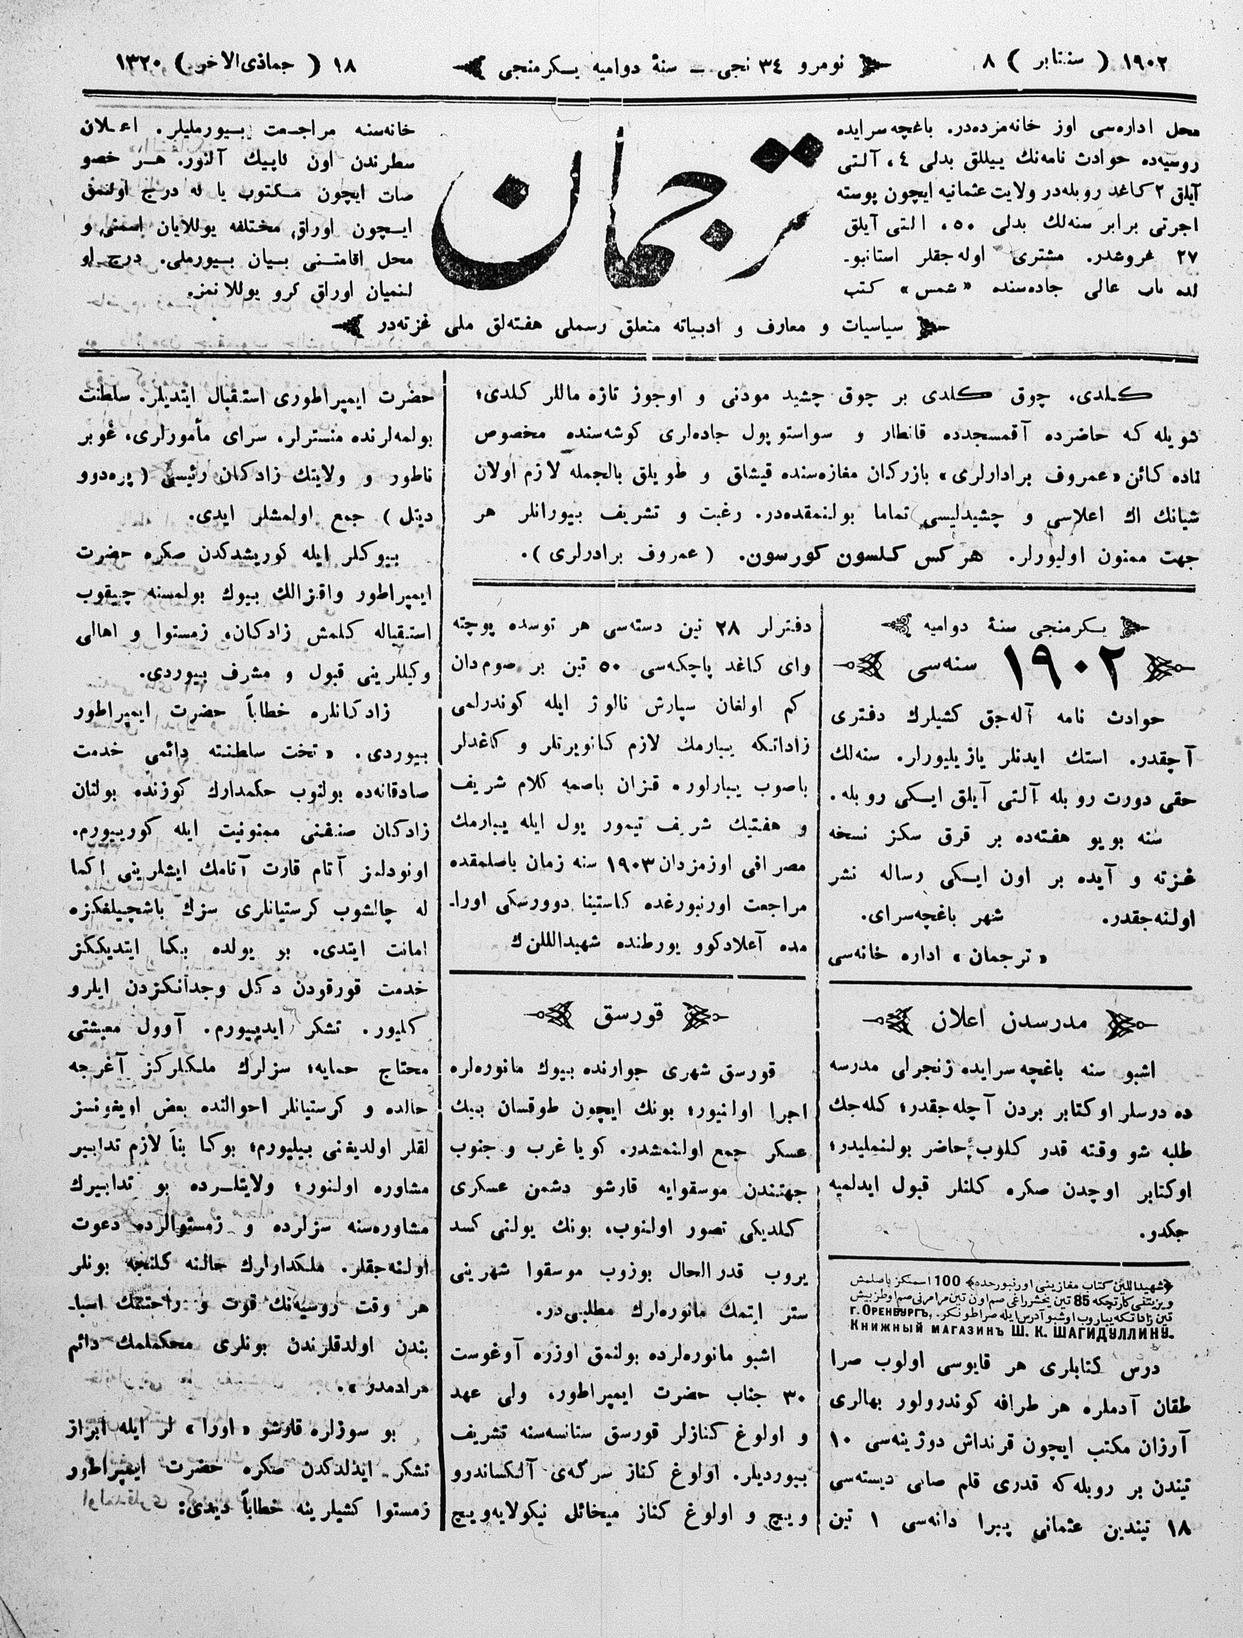 ١٩٠٢ ( سنتابر ) ٨
نومرو ٣٤ نجی ــ سنهٔ دوامیه یـكرمنجی
١٨ ( جماذی‌الاخر ) ١٣٢٠
محل اداره‌سی اوز خانه‌مزده‌در. باغچه سرایده
روسیه‌ده حوادث نامه‌نك ییللق بدلی ٤، آلـتی
آیلق ٢ كاغد روبله‌در ولایت عثمانیه ایچون پوسته
اجرتی برابر سنه‌لك بدلی ٥٠، الـتی آیلق
٢٧ غروشدر. مشتری اوله‌جقلر استانبو-
لده باب عالی جاده‌سنده «شمس» كتب
ترجمان
خانه‌سنه مراجـعت بـیورملیلر. اعـلان
سطرندن اون قاپیك آلنور. هـر خصو
صات ایچون مـكتوب یا له درج اولنمق
ایـچون اوراق مختلفه یوللایان اسمنی و
محل اقامتـنی بـیان بـیورملی. درج او
لنمیان اوراق كرو یوللانمز.
سیاسیات و معارف و ادبیاته متعلق رسملی هفته‌لق ملی غزته‌در
كـلدی، چوق كـلدی بر چوق چشید مودنی و اوجوز تازه ماللر كلدی؛
شویله كـه حاضرده آقمسجدده قانطار و سواستوپول جاده‌لری كوشه‌سنده مخصوص
كائن «عمروف برادارلری» بازركان مغازه‌سنده قیشلق و طویلق بالجمله لازم اولان
شیانك اك اعلاسی و چشیدلیسی تماما بولنمقده‌در. رغبت و تشریف بیورانلر هر
جهت ممنون اولیورلر. هركس كـلسون كورسون. (عمروف برادرلری).
یـكرمنجی سنهٔ دوامیه
١٩٠٢ سنه‌سی
حوادث نامه آله‌جق كشیلرك دفتری
آچقدر. استك ایدنلر یازیلیورلر. سنه‌لك
حقی دورت روبله آلـتی آیلق ایـكی روبله.
سنه بویو هفته‌ده بر قرق سكز نسخه
غـزته و آیده بر اون ایـكی رساله نشر
اولنه‌جقدر. شهر باغچه‌سرای.
«ترجمان» اداره خانه‌سی
مدرسدن اعلان
اشبو سنه باغچه سرایده زنجرلی مدرسه
ده درسلر اوكتابر بردن آچله‌جقدر؛ كله‌جك
طلبه شو وقته قدر كلوب حاضر بولنملیدر؛
اوكتابر اوچدن صكره كلنلر قبول ایدلمیه
جكدو.
«شهیداللین كتاب مغازینی اورنبورحده» 100 اسمكز باصلمش
ویزیتنی كارتچكه 85 تین
г. ОРЕНБУРГЪ,
КНИЖНЫЙ МАГАЗИНЪ Ш. К. ШАГИДУЛЛИНУ.
درس كتابلری هر قایوسی اولوب صرا
طقان آدملره هر طرافه كوندرولور بهالری
آرزان مكتب ایچون قرنداش دوژینه‌سی ١٠
تیندن بر روبله‌كه قدری قلم صابی دیسته‌سی
١٨ تیندین عثمانی پیرا دانه‌سی ١ تین
دفترلر ٢٨ تین دسته‌سی هر توسده پوچته
وای كاغد پاچكه‌سی ٥٠ تین بر صوم‌دان
كم اولغان سپارش نالوژ ایله كوندرلمی
زاداتكه یبارمك لازم كانویرتلر و كاغدلر
باصوب یبارلور. قـزان باصمه كلام شریف
و هفتیك شریف تیمور یول ایله یبارمك
مصرافی اوزمزدان ١٩٠٣ سنه زمان باصلمقده
مراجعت اورنبورغده كاستینا دوورسكی اورا-
مده یورطنده شهیداللن‌ك
قورسق
قورسق شهری جوارنده بیوك مانوره‌لره
اجرا اولـنیور؛ بونك ایچون طوقسان بیك
عسكر جمع اولنمشدر. كویا غرب و جنوب
جهتندن موسقوایه قارشو دشمن عسكری
كلدیكی تصور اولنوب، بونك یولنی كسد
یروب قدرالحال بوزوب موسقوا شهرینی
ستر ایتمك مانوره‌لرك مطلبی‌در.
اشبو مانوره‌لرده بولنمق اوزره آوغوست
٣٠ جناب حضرت ایمپراطور، ولی عهد
و اولوغ كنازلر قورسق ستانسه‌سنه تشریف
بیوردیلر. اولوغ كناز سرگه‌ی آلكساندرو
ویچ و اولوغ كناز میخائل نیكولایه‌ویچ
حضرت ایمپراطوری استـقبال ایتدیلر. سلطنت
بولمه‌لرنده منسترلر، سرای مأمورلری، غوبر
ناطور و ولایتك زادكان رئیسی (پره‌دوو
دیتل) جمع اولمشلر ایدی.
بیوكلر ایله كوریشدكدن صكره حضرت
ایمپراطور واقزالك بـیوك بولمسنه چیقوب
استـقباله كـلمش زادكـان، زمستوا و اهالی
وكیللرینی قبول و مشرف بیوردی.
زادكـانلره خطاباً حضرت ایمپراطور
بیوردی. «تخت سلطنته دائمی خدمت
صادقانه‌ده بولنوب حكمدارك كوزنده بولنان
زادكـان صنفنی ممنونیت ایله كوریـیورم.
اونودلمز آتام قارت آتامك ایشلرینی اكما
له چالشوب كرستیانلری سزك باشچیلغكزه
امانت ایتدی. بو یولده بكا ایتدیككز
خدمت قورقودن دكل وجدانكزدن ایلرو
كلیور. تشكر ایدیـیورم. آوول معیشتی
محتاج حمایه؛ سزلرك ملكلركز آغرجه
حالده و كرستیانلر احوالنده بعض اویغونسز
لقلر اولدیغنی بیلیورم؛ بوكا بناً لازم تدابیر
مشاوره اولنور؛ ولایتلـرده بو تدابیرك
مشاوره‌سنه سزلرده و زمستوالرده دعوت
اولنه‌جقلر. ملكدارلرك حالنه كلنجه بونلر
هر وقت روسیه‌نك قوت و راحتنك اسبا-
بندن اولدقلرندن بونلری محكملمك دائم
مرادمدر».
بو سوزلره قارشو «اورا» لر ایله ابراز
تشكر ایدلدكدن صكره حضرت ایمپراطور
زمستوا كشیلرینه خطاباً دیدی: